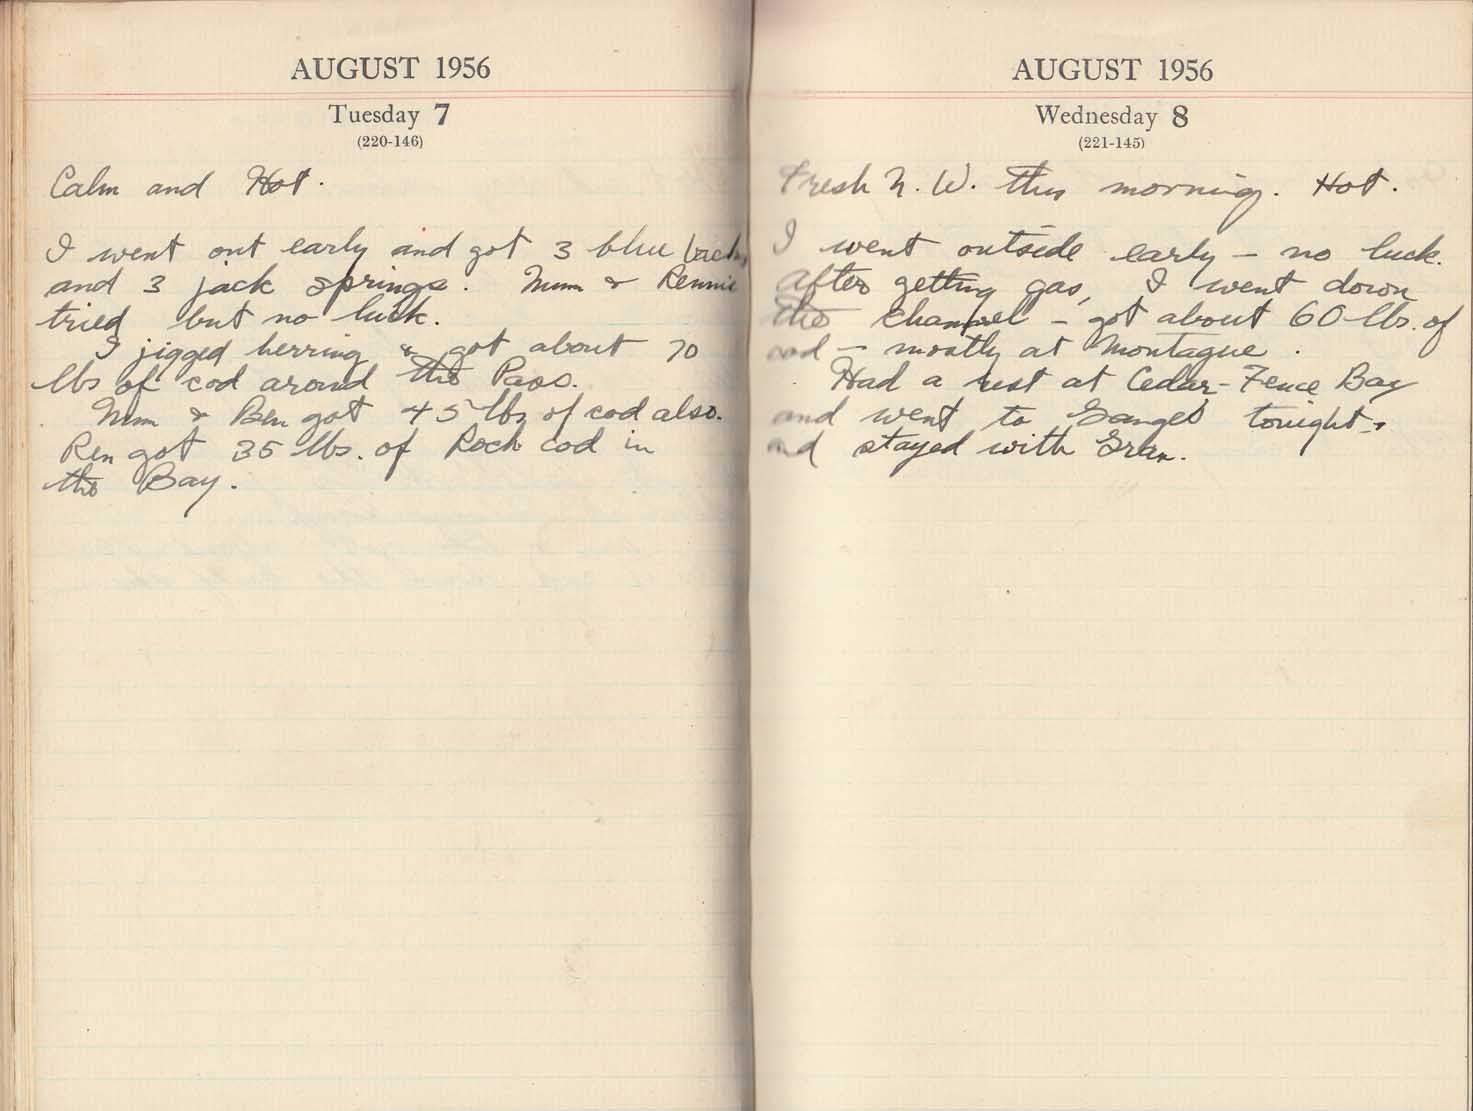 AUGUST 1956
Tuesday 7
(220-146)
Calm and Hot.
I went out early and got 3 blue backs
and 3 jack springs. Mum & Rennie
tried but no luck.
I jigged herring & got about 70
lbs of cod around the Pass.
Mum & Ben got 45 lbs of cod also.
Ren got 35 lbs. of Rock cod in
the Bay.
AUGUST 1956
Wednesday 8
(221-145)
Fresh N. W. this morning. Hot.
I went outside early - no luck.
After getting gas, I went down
the channel - got about 60 lbs. of
cod - mostly at Montague.
Had a rest at Cedar-Fence Bay
and went to Ganges tonight
and stayed with Gran.